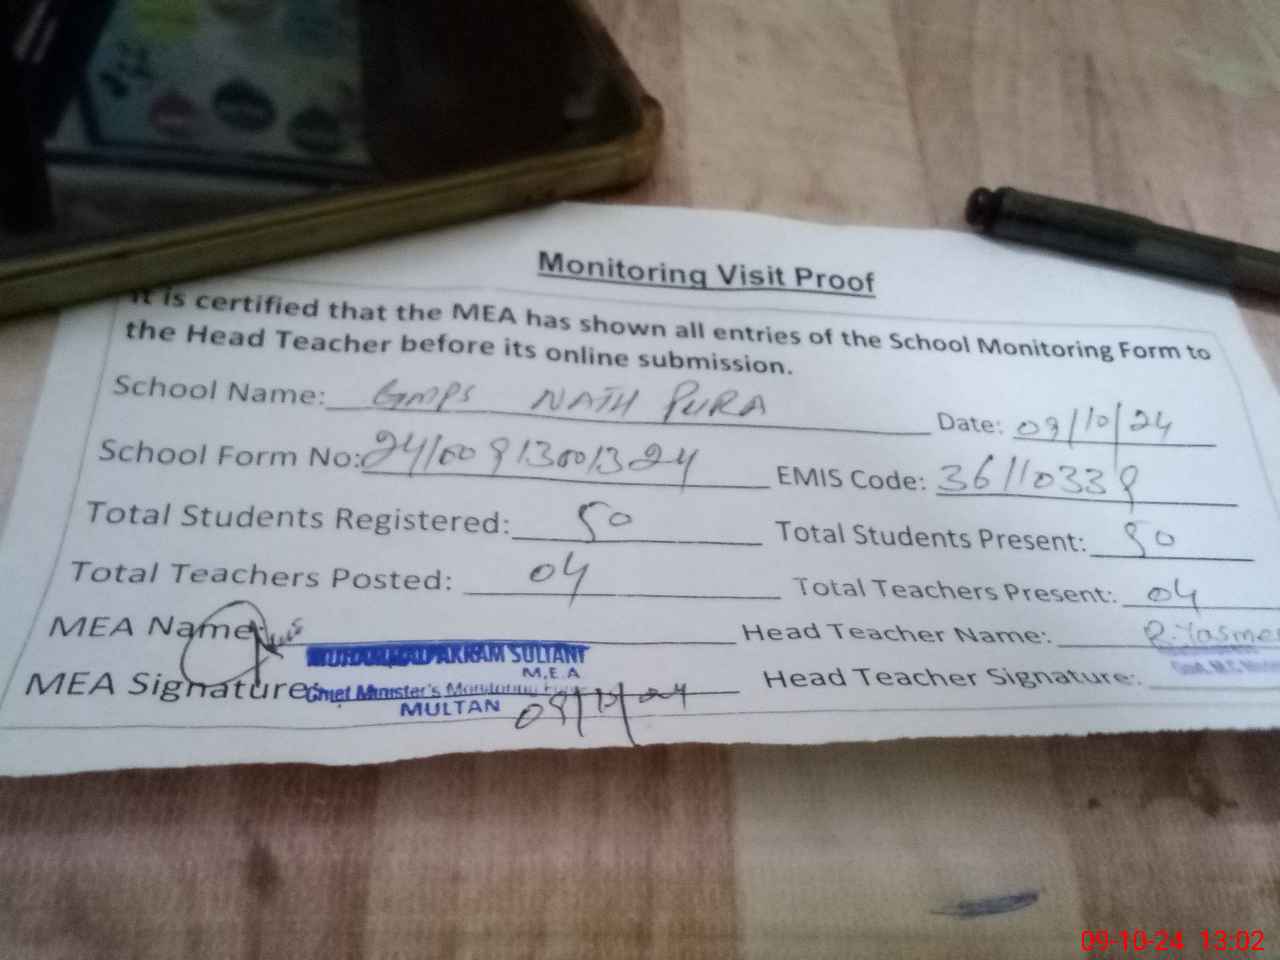 Monitoring Visit Proof
It is certified that the MEA has shown all entries of the School Monitoring Form to
the Head Teacher before its online submission.
School Name: GMPS NATH PURA
Date: 09/10/24
School Form No: 24100913001324
EMIS Code: 36110339
Total Students Registered: 50
Total Students Present: 50
Total Teachers Posted: 04
Total Teachers Present: 04
MEA Name:
Head Teacher Name: R.Yasme
AKRAM SULTANI
M.E.A
MEA Signature:
Chief Minister's Monitoring
Head Teacher Signature:
MULTAN
09/10/24
09-10-24 13:02